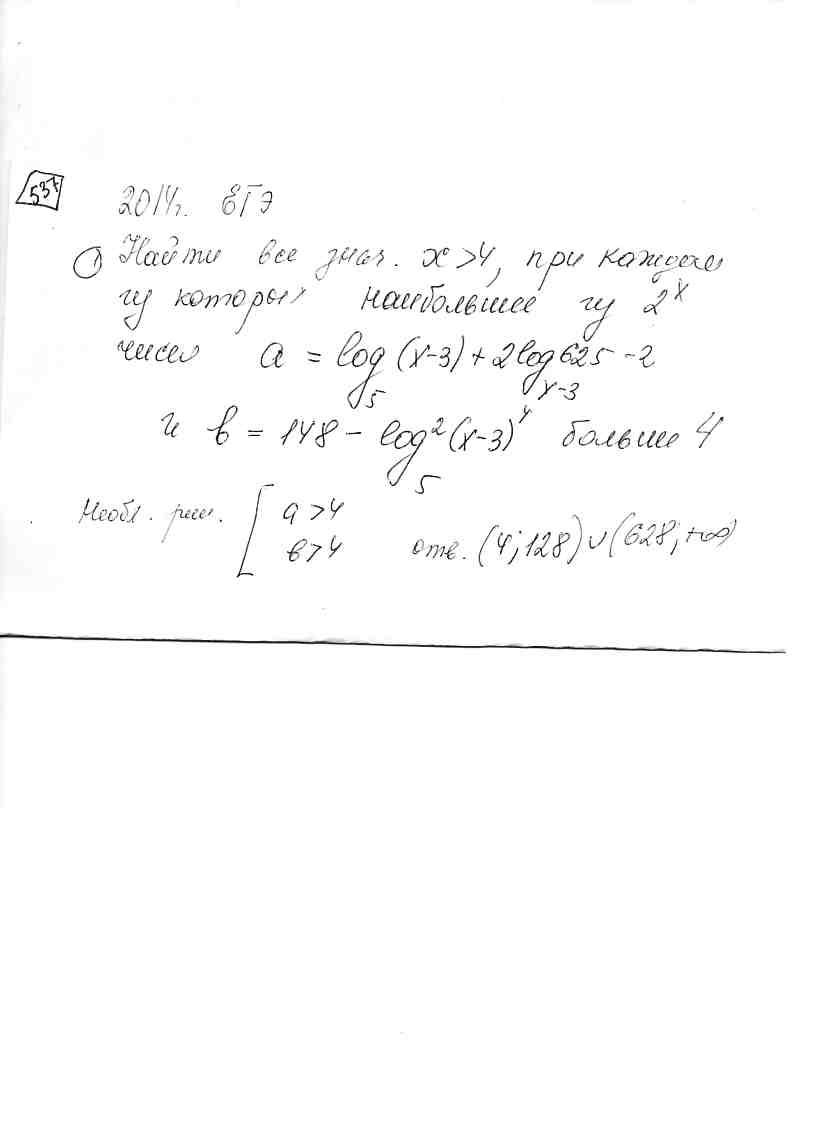 537
2014г. ЕГЭ
① Найти все знач. x>4, при каждом
из которых наибольшее из 2^x
чисел a = log_5 (x-3) + 2log_{x-3} 625 - 2
и b = 148 - log_5^2 (x-3)^4 больше 4
Необх. реш. [ a>4
b>4 отв. (4;128)∪(628;+∞)